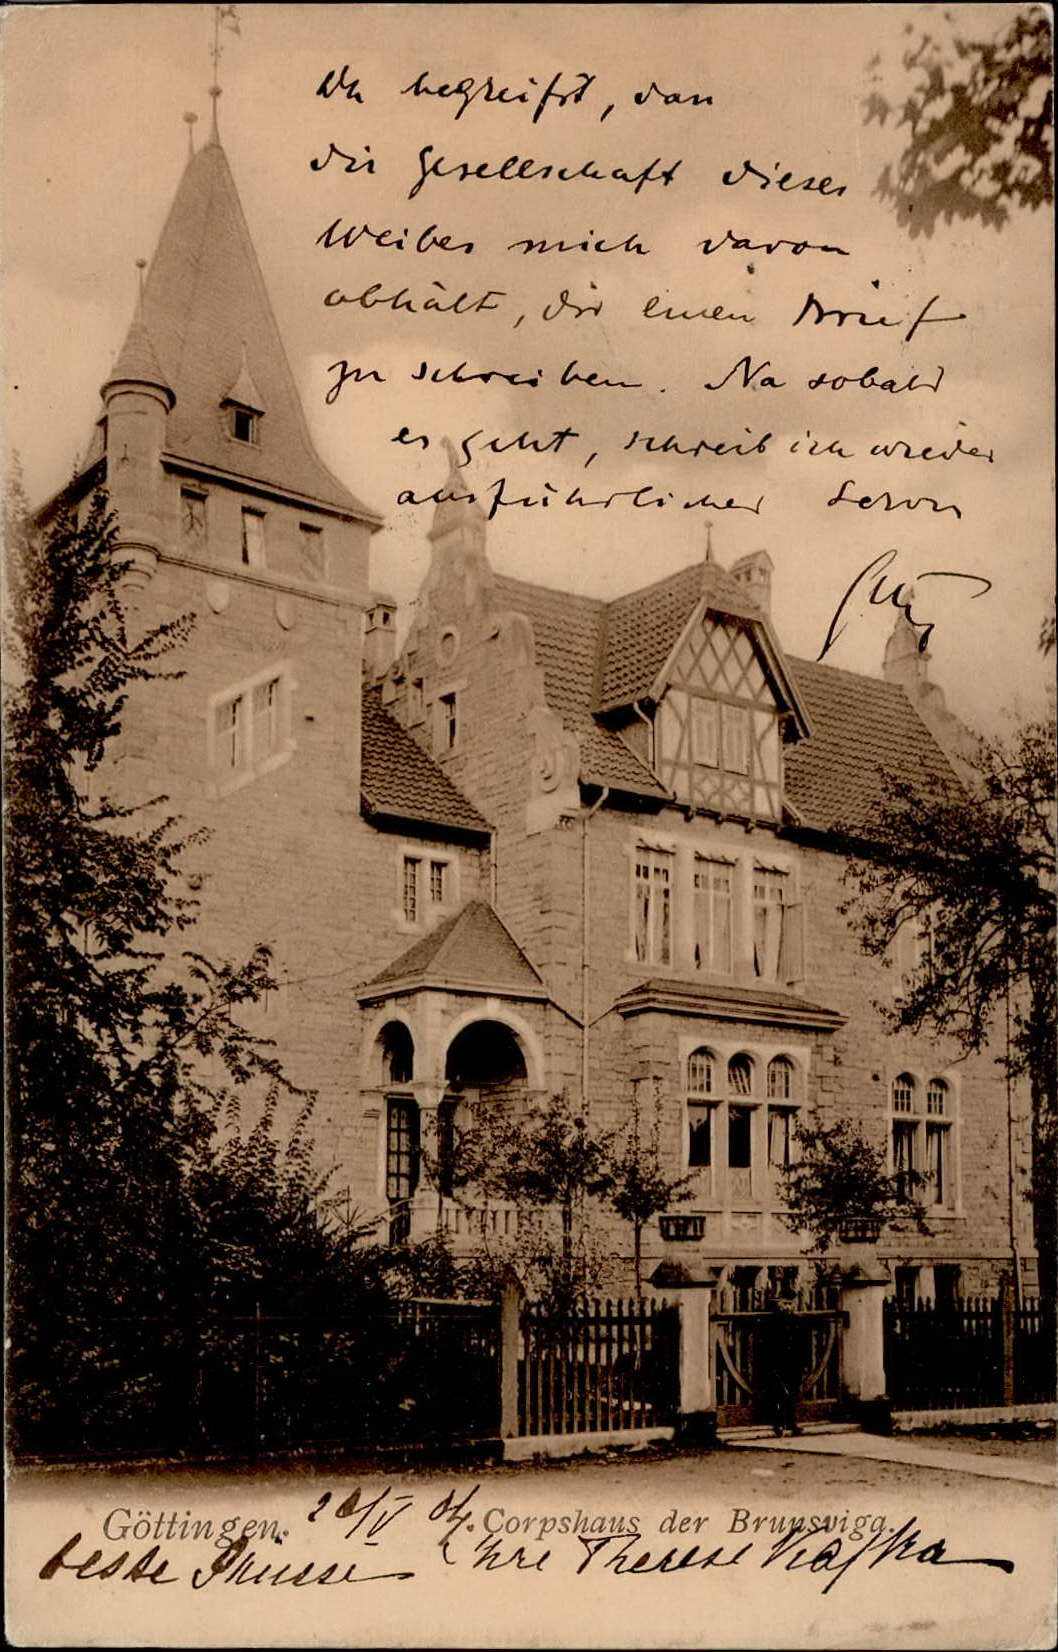 Du begreifst, dan
die Gesellschaft dieses
Weibes mich davon
abhält, dir einen Brief
zu schreiben. Na sobald
es geht, schreib ich wieder
ausführlicher
Göttingen. 20/V 04. Corpshaus der Brunsviga.
beste Grüsse Ihre Therese Kafka